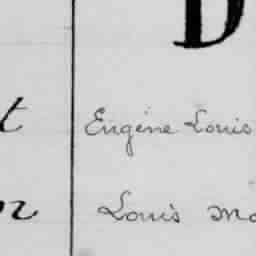 D
t Eugène Louis
n Louis Ma